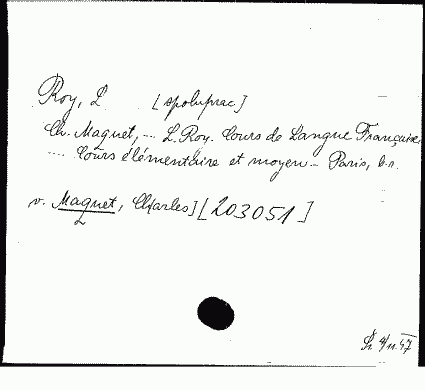 Roy, L. [spoluprac]
Ch. Maquet, ... L. Roy. Cours de Langue Française.
.... Cours élémentaire et moyen. – Paris, b.r.
v. Maquet, Charles] [203051]